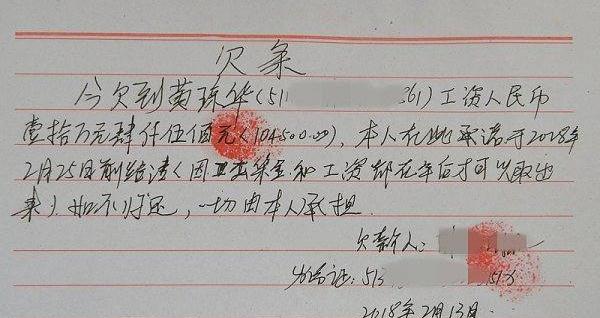 欠条
今欠到黄琼华(511 361)工资人民币
壹拾万零肆仟伍佰元(104500.00),本人在此承诺于2018年
2月25日前结清(因 和工资都在年后才可以取出
来).如不归还,一切由本人承担.
欠款人:
份证:513
2018年2月13日.